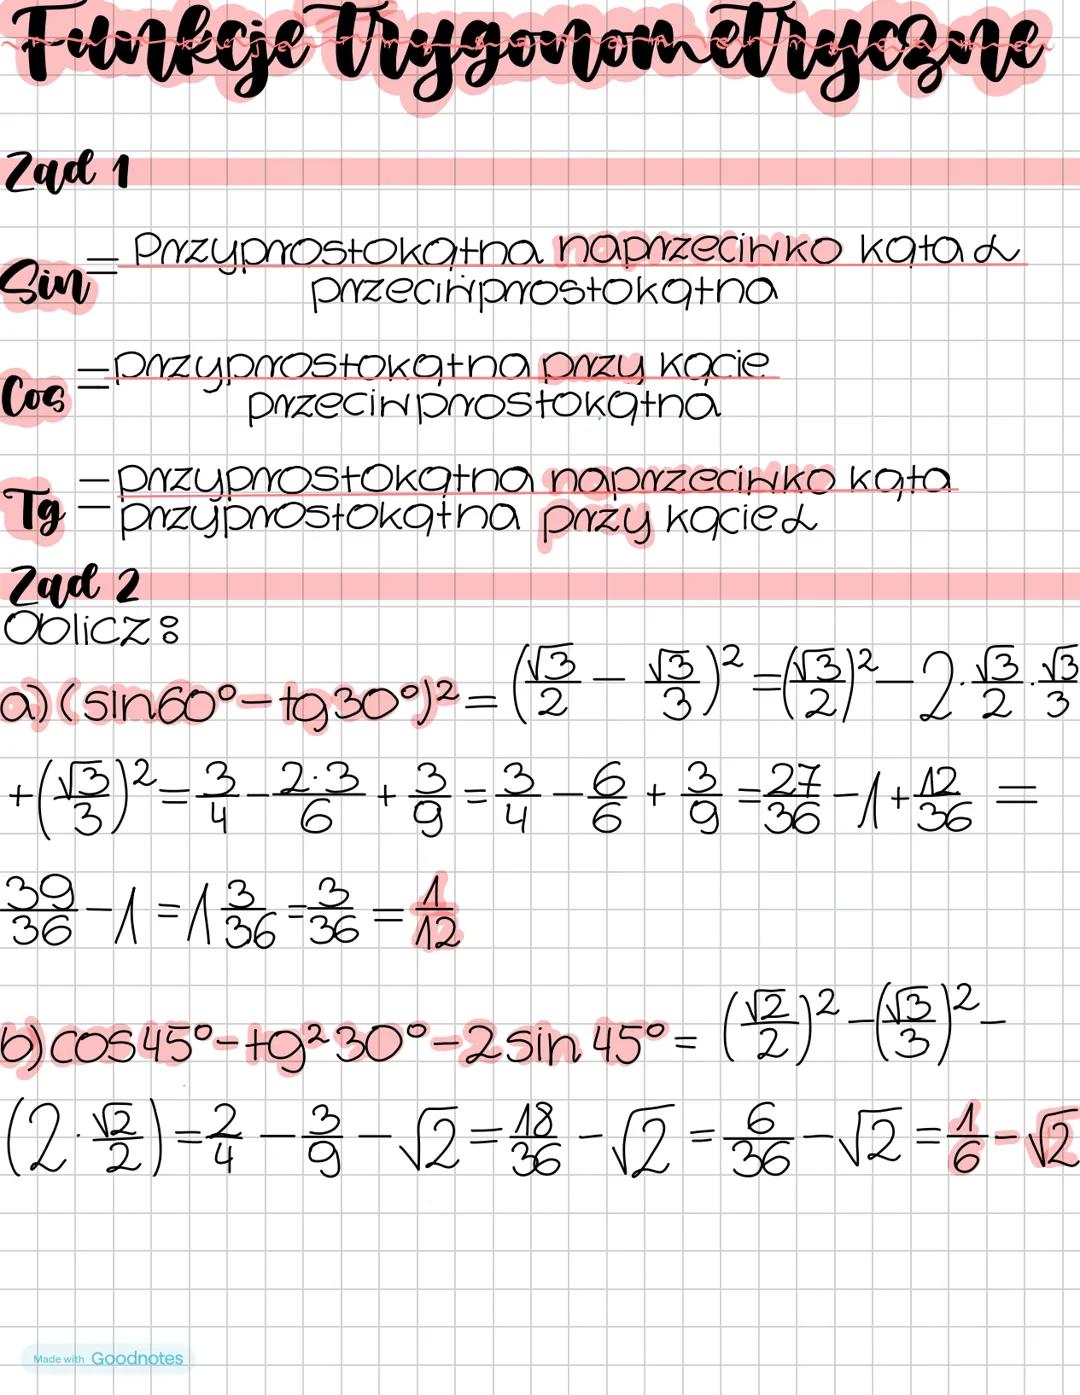 Funkcje trygonometryczne
Zad 1
Sin = przyprostokątna naprzeciwko kąta α / przeciwprostokątna
Cos = przyprostokątna przy kącie / przeciwprostokątna
Tg = przyprostokątna naprzeciwko kąta / przyprostokątna przy kącie α
Zad 2
Oblicz:
a) (sin60° - tg30°)² = (√3/2 - √3/3)² = (√3/2)² - 2·√3/2·√3/3
+(√3/3)² = 3/4 - 2·3/6 + 3/9 = 3/4 - 6/6 + 3/9 = 27/36 - 1 + 12/36 =
39/36 - 1 = 1 3/36 = 3/36 = 1/12
b) cos45° - tg²30° - 2sin45° = (√2/2)² - (√3/3)² -
(2·√2/2) = 2/4 - 3/9 - √2 = 18/36 - √2 = 6/36 - √2 = 1/6 - √2
Made with Goodnotes